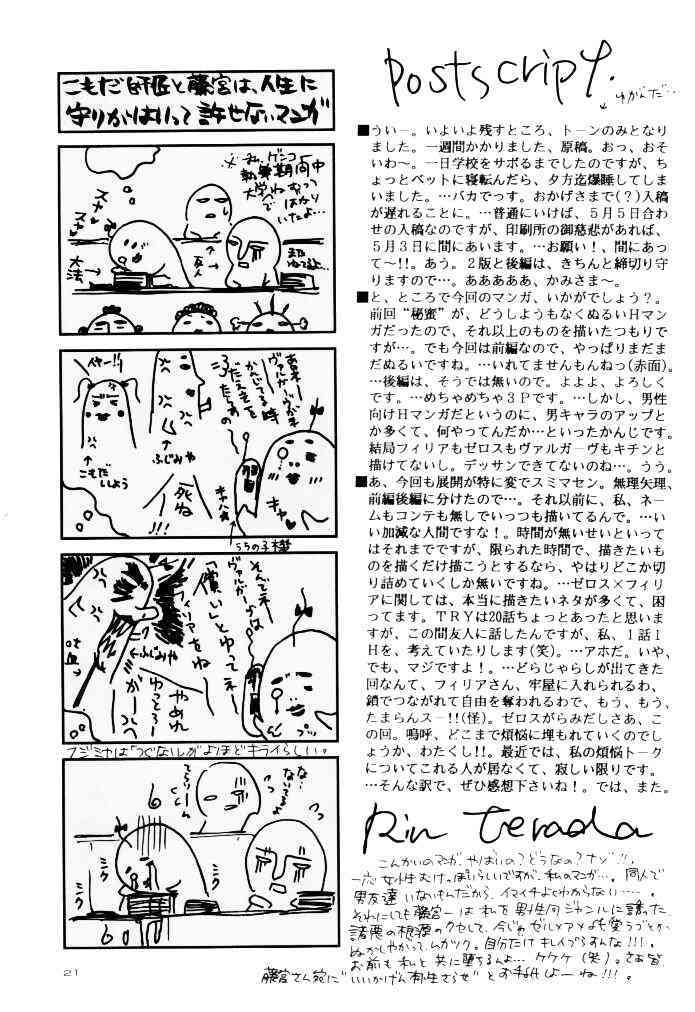 postscript.
ゆがんだ…
■ういー。いよいよ残すところ、トーンのみとなり
ました。一週間かかりました、原稿。おっ、おそ
いわ～。一日学校をサボるまでしたのですが、ち
ょっとベットに寝転んだら、夕方迄爆睡してしま
いました。…バカでっす。おかげさまで(？)入稿
が遅れることに。…普通にいけば、５月５日合わ
せの入稿なのですが、印刷所の御慈悲があれば、
５月３日に間にあいます。…お願い！、間にあっ
て～!!。あう。２版と後編は、きちんと締切り守
りますので…。あああああ、かみさま～。
■と、ところで今回のマンガ、いかがでしょう？。
前回“秘蜜”が、どうしようもなくぬるいＨマン
ガだったので、それ以上のものを描いたつもりで
すが…。でも今回は前編なので、やっぱりまだま
だぬるいですね。…いれてませんもんねっ(赤面)。
…後編は、そうでは無いので。よよよ、よろしく
です。…めちゃめちゃ３Ｐです。…しかし、男性
向けＨマンガだというのに、男キャラのアップと
か多くて、何やってんだか…といったかんじです。
結局フィリアもゼロスもヴァルガーヴもキチンと
描けてないし。デッサンできてないのね…。うう。
■あ、今回も展開が特に変でスミマセン。無理矢理、
前編後編に分けたので…。それ以前に、私、ネー
ムもコンテも無しでいっつも描いてるんで…。い
い加減な人間ですな！。時間が無いせいといって
はそれまでですが、限られた時間で、描きたいも
のを描くだけ描こうとするなら、やはりどこか切
り詰めていくしか無いですね。…ゼロス×フィリ
アに関しては、本当に描きたいネタが多くて、困
ってます。ＴＲＹは20話ちょっとあったと思いま
すが、この間友人に話したんですが、私、１話１
Ｈを、考えていたりします(笑)。…アホだ。いや、
でも、マジですよ！。…どらじゃらしが出てきた
回なんて、フィリアさん、牢屋に入れられるわ、
鎖でつながれて自由を奪われるわで、もう、もう、
たまらんスー!!(怪)。ゼロスがらみだしさあ、こ
の回。嗚呼、どこまで煩悩に埋もれていくのでし
ょうか、わたくし!!。最近では、私の煩悩トーク
についてこれる人が居なくて、寂しい限りです。
…そんな訳で、ぜひ感想下さいね！。では、また。
Rin terada
こんかいのマンガ、やばいの？どうなの？ナゾ!!。
一応女性むけっぽいらしいですが、私のマンガ…。同人で
男友達いないもんだから、イマイチよくわからない……。
それにしても藤宮一は私を男性向ジャンルに誘った
諸悪の根源のクセして、今じゃゼル×アメも堂うづとか
ぬかしやがって、ムカツク。自分だけキレイぶるすんな!!!。
お前も私と共に堕ちるんよ…ケケケ(笑)。さぁ皆
藤宮さん宛に“いいかげん再生さらせ”とお手紙よーね!!!。
こもだ師匠と藤宮は、人生に
守りがはいって許せないマンガ
ゲンコ
執筆期間中
大学ね
てばかり
いたよ…
スヤ
友人
大法
イヤー!!
こもだ
ししょう
ふじみや
死ね
!!!
ヴァルガーヴが
かんじてる時
キャハ
キャ
うちの子機
そんでネー
ヴァルガーヴは
「償い」とゆってネー
フィリアをね
ふじみや
吐血
やめれ
プッ
フジミヤは「つぐない」がよほどキライらしい。
ミク
ミク
21